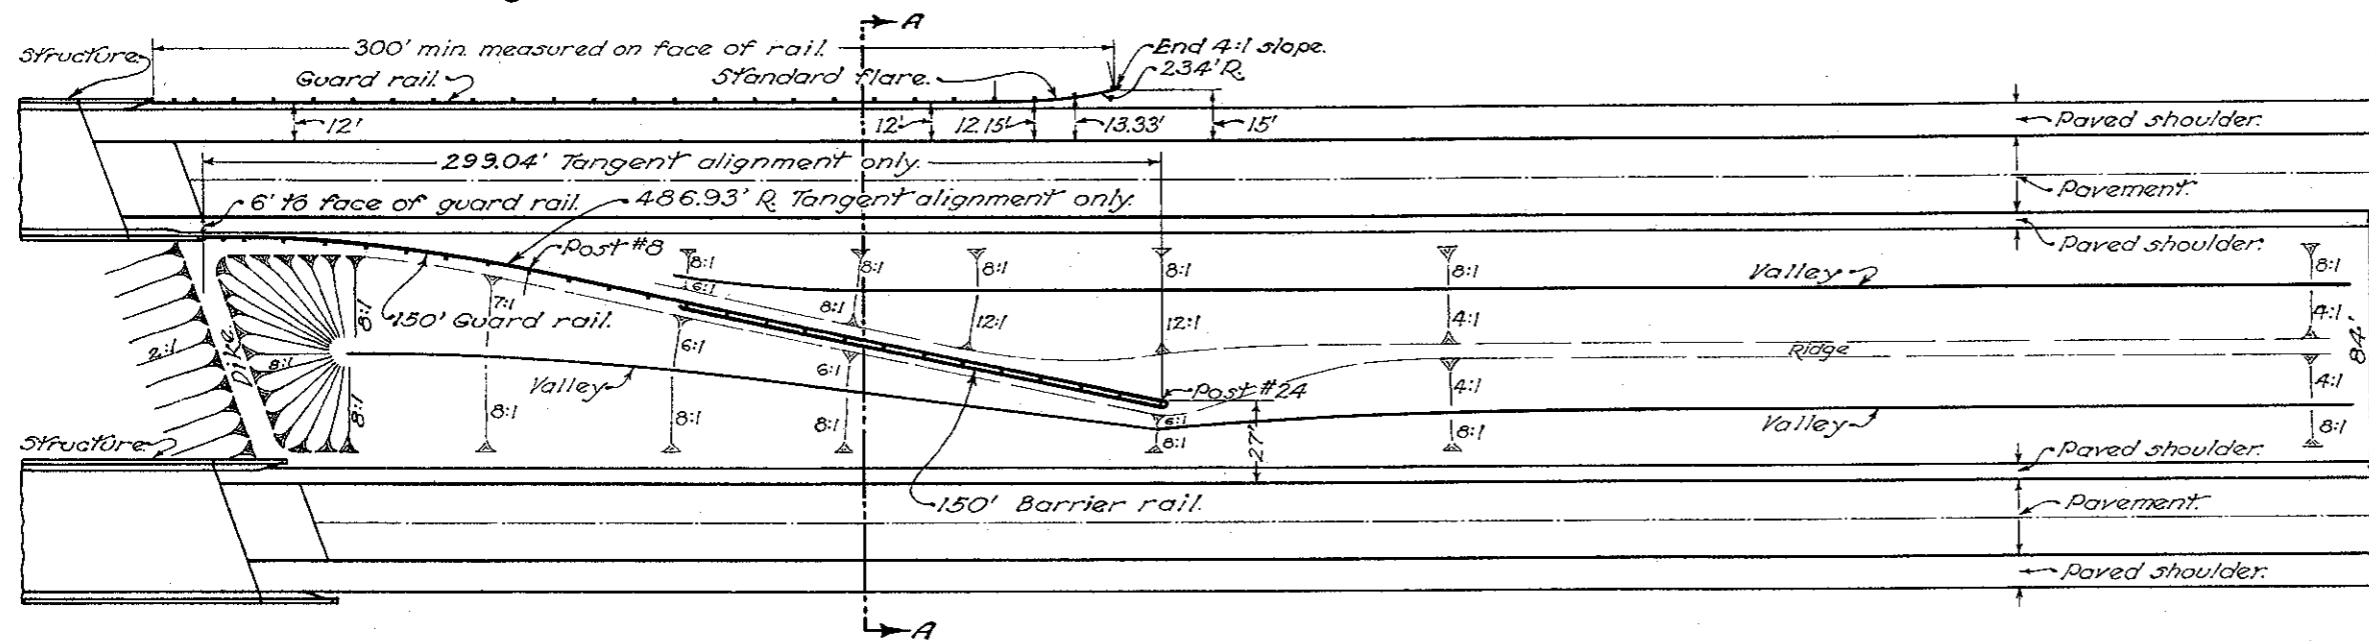 A
Structure.
300' min. measured on face of rail.
End 4:1 slope.
Guard rail.
Standard flare.
234' R.
12'
12'
12.15'
13.33'
15'
Paved shoulder.
299.04' Tangent alignment only.
6' to face of guard rail.
486.93' R. Tangent alignment only.
Pavement.
Post #8
Paved shoulder.
8:1
8:1
8:1
8:1
8:1
8:1
Valley
6:1
7:1
8:1
8:1
150' Guard rail.
12:1
12:1
4:1
4:1
2:1
Dike.
8:1
6:1
6:1
Ridge
84'
Valley
Post #24
4:1
4:1
8:1
8:1
8:1
8:1
6:1
8:1
27'
8:1
Valley
8:1
Structure.
Paved shoulder.
150' Barrier rail.
Pavement.
Paved shoulder.
A